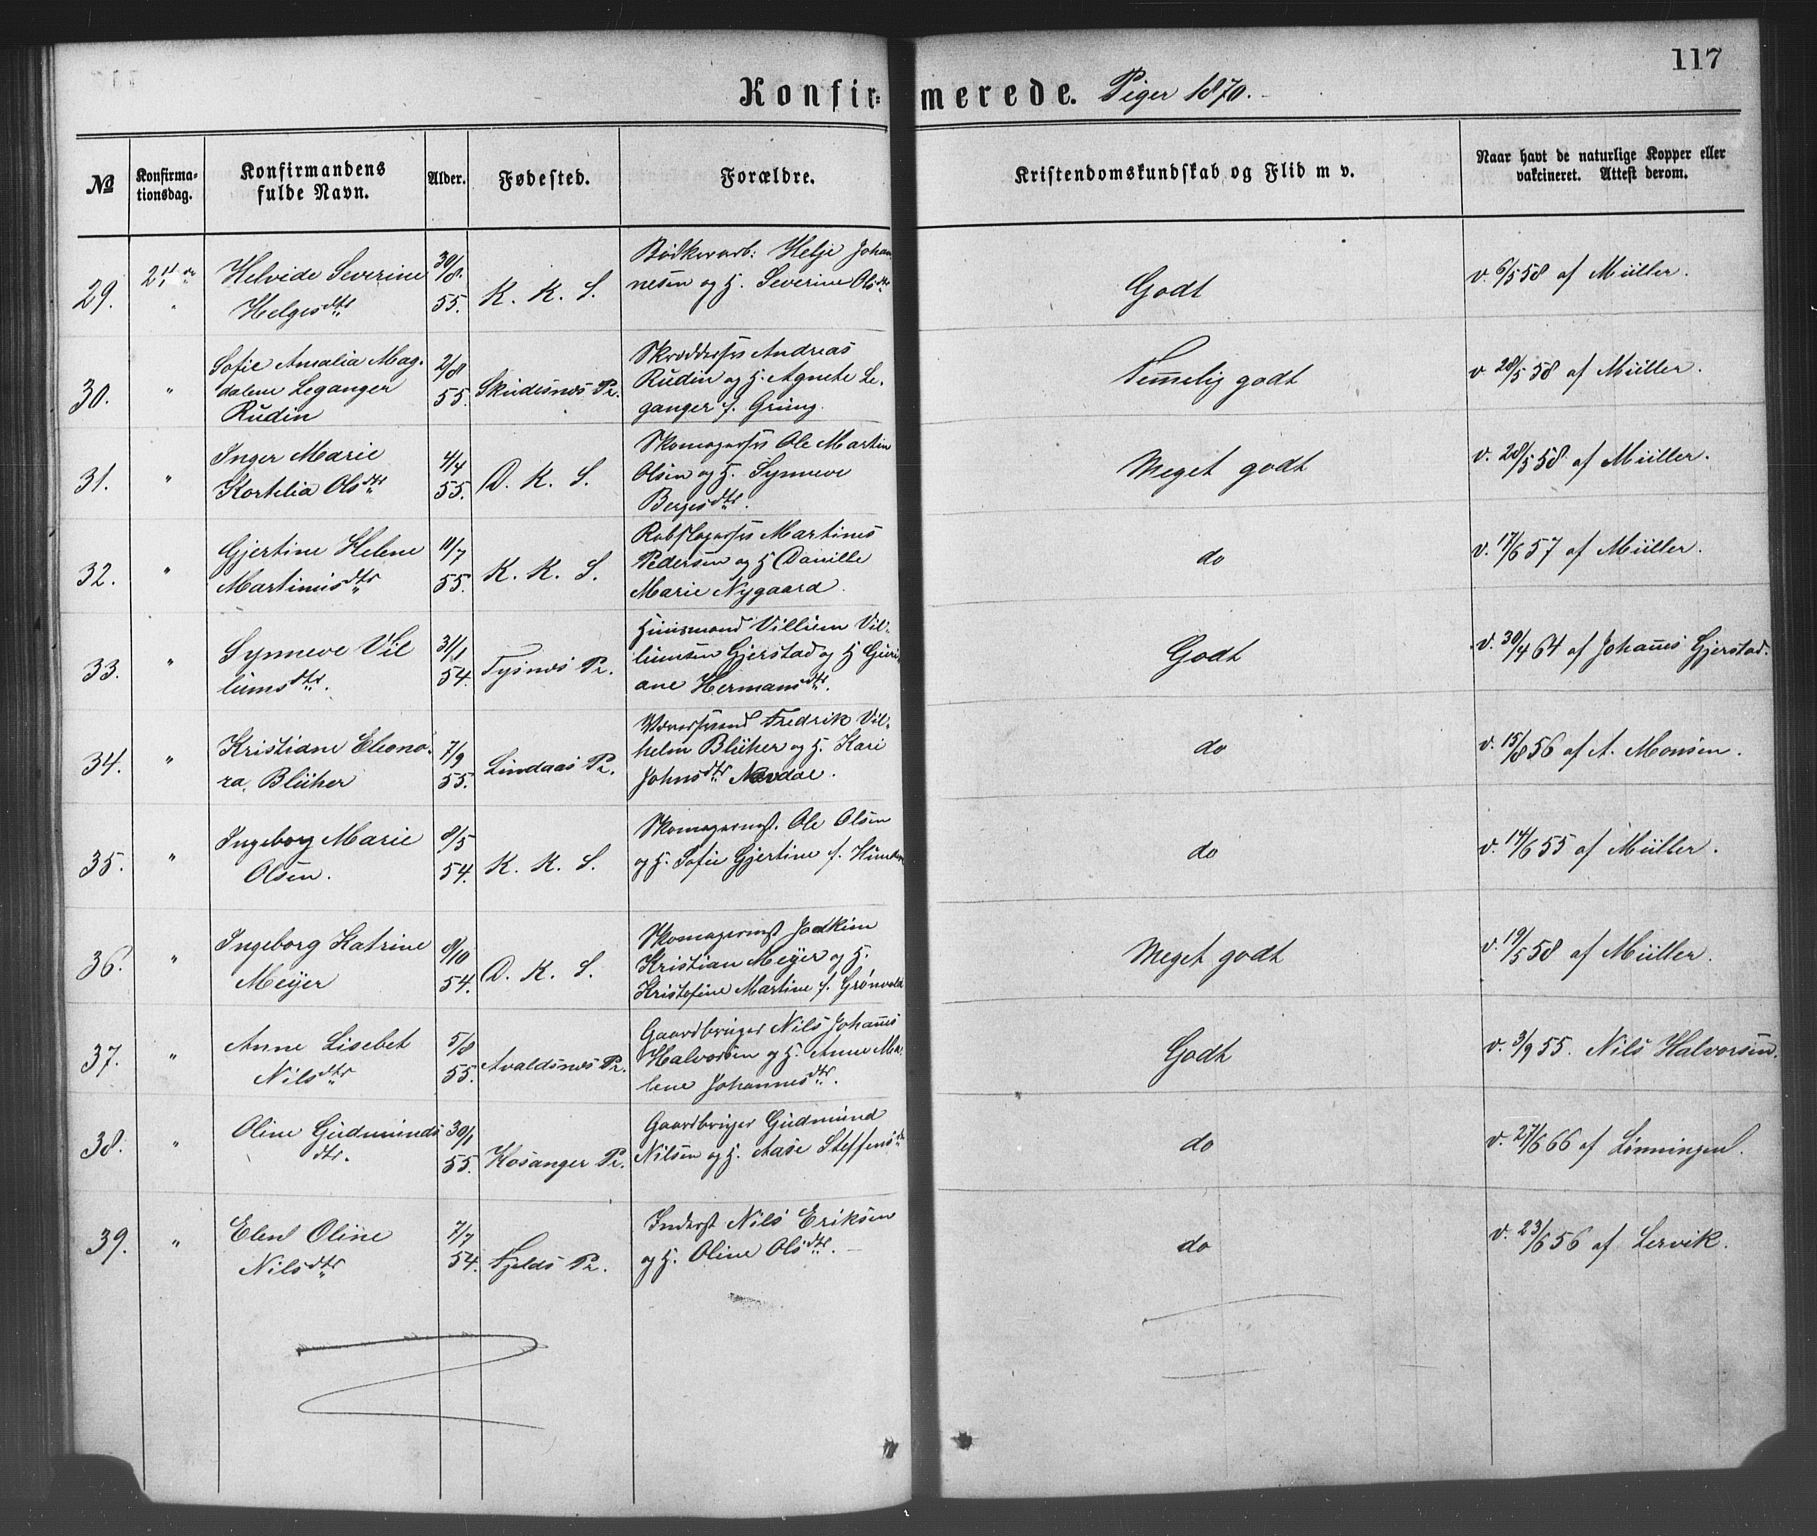 117
Konfirmerede. Piger 1870.
№
Konfirma-
tionsdag.
Konfirmandens
fulde Navn.
Alder.
Fødested.
Forældre.
Kristendomskundskab og Flid m v.
Naar havt de naturlige Kopper eller
vakcineret. Attest derom.
29.
Helvide Severine
Helgesdtr
30/8.
55.
K. K. S.
Bødkerarb: Helje Johan
nesen og H. Severine Olsdtr
Godt
v. 6/5 58 af Müller.
30.
"
Sofie Amalia Mag-
dalene Leganger
Rudin
2/8
55.
Skudesnæs Pr.
Skræddersvs Andreas
Rudin og H. Agnete Le-
ganger f. Grung.
Temmelig godt
v. 28/5 58 af Müller.
31.
"
Inger Marie
Kornelia Olsdtr
4/4
55.
D. K. S.
Skomagersvs Ole Martin
Olsen og H. Synneve
Bergesdtr.
Meget godt
v. 28/5 58 af Müller.
32.
"
Gjertine Helene
Martinusdtr
11/7
55.
K. K. S.
Rebslagersvs Martinus
Pedersen og H Danille
Marie Nygaard.
do
v. 17/6 57 af Müller.
33.
"
Synneve Vil
lumsdtr.
31/1
54.
Tysnæs Pr.
Huusmand Villum Vil-
lumsen Gjerstad og H Guri
ane Hermansdtr.
Godt
v. 30/4 64 af Johannes Gjerstad.
34.
"
Kristiane Eleono-
ra, Blüher
7/9
55.
Lindaas Pr.
Fredrik Vil-
helm Blüher og H. Kari
Johnsdtr
do
v. 15/8 56 af A. Monsen.
35.
"
Ingeborg Marie
Olsen.
8/5
54.
K. K. S.
Skomagermst. Ole Olsen
og H. Sofie Gjertine f.
do
v. 14/6 55 af Müller.
36.
"
Ingeborg Katrine
Meijer
8/10
54.
D. K. S.
Skomagermst Joakim
Kristian Meijer og H.
Kristofine Martine f. Grønvold
Meget godt
v. 19/5 58 af Müller.
37.
"
Anne Lisebet
Nilsdtr
5/8
55.
Avaldsnæs Pr.
Gaardbruger Nils Johannes
Halvorsen og H. Anne Ma-
lene Johannesdtr.
Godt
v. 3/9 55. Nils Halvorsen.
38.
"
Oline Gudmunds
dtr.
30/1
55.
Kosanger Pr.
Gaardbruger Gudmund
Nilsen og H. Aase Steffensdtr
do
v. 27/6 66 af Lønningen.
39.
"
Elen Oline
Nilsdtr
7/7
54.
Fjelds Pr.
Inderst Nils Eriksen
og H. Oline Olsdtr.
do
v. 23/6 56 af Lervik.